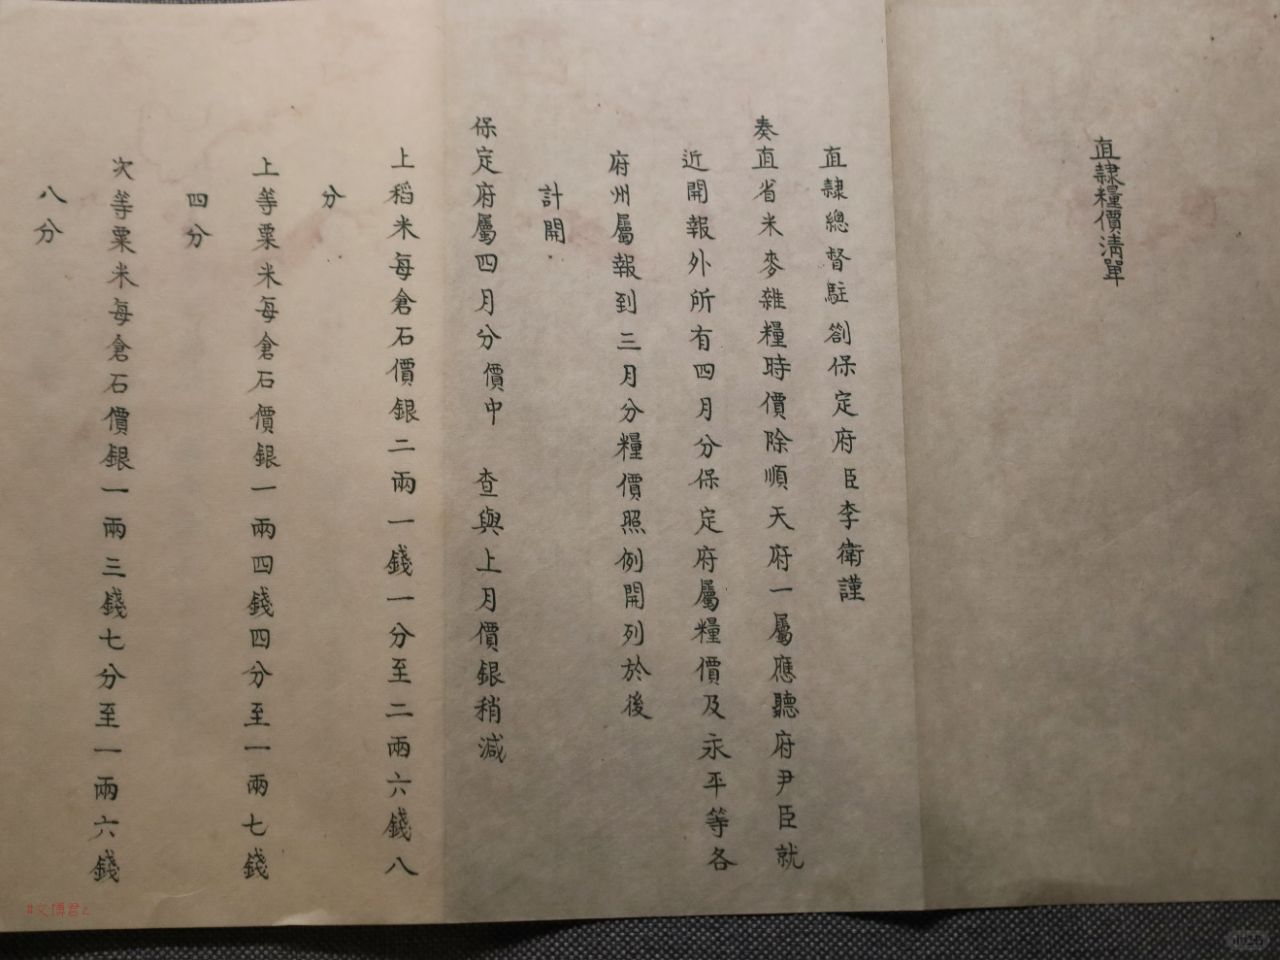 直隸糧價清單
直隸總督駐劄保定府臣李衛謹
奏直省米麥雜糧時價除順天府一屬應聽府尹臣就
近開報外所有四月分保定府屬糧價及永平等各
府州屬報到三月分糧價照例開列於後
計開
保定府屬四月分價中 查與上月價銀稍減
上稻米每倉石價銀二兩一錢一分至二兩六錢八
分
上等粟米每倉石價銀一兩四錢四分至一兩七錢
四分
次等粟米每倉石價銀一兩三錢七分至一兩六錢
八分
#文博君z
小红书